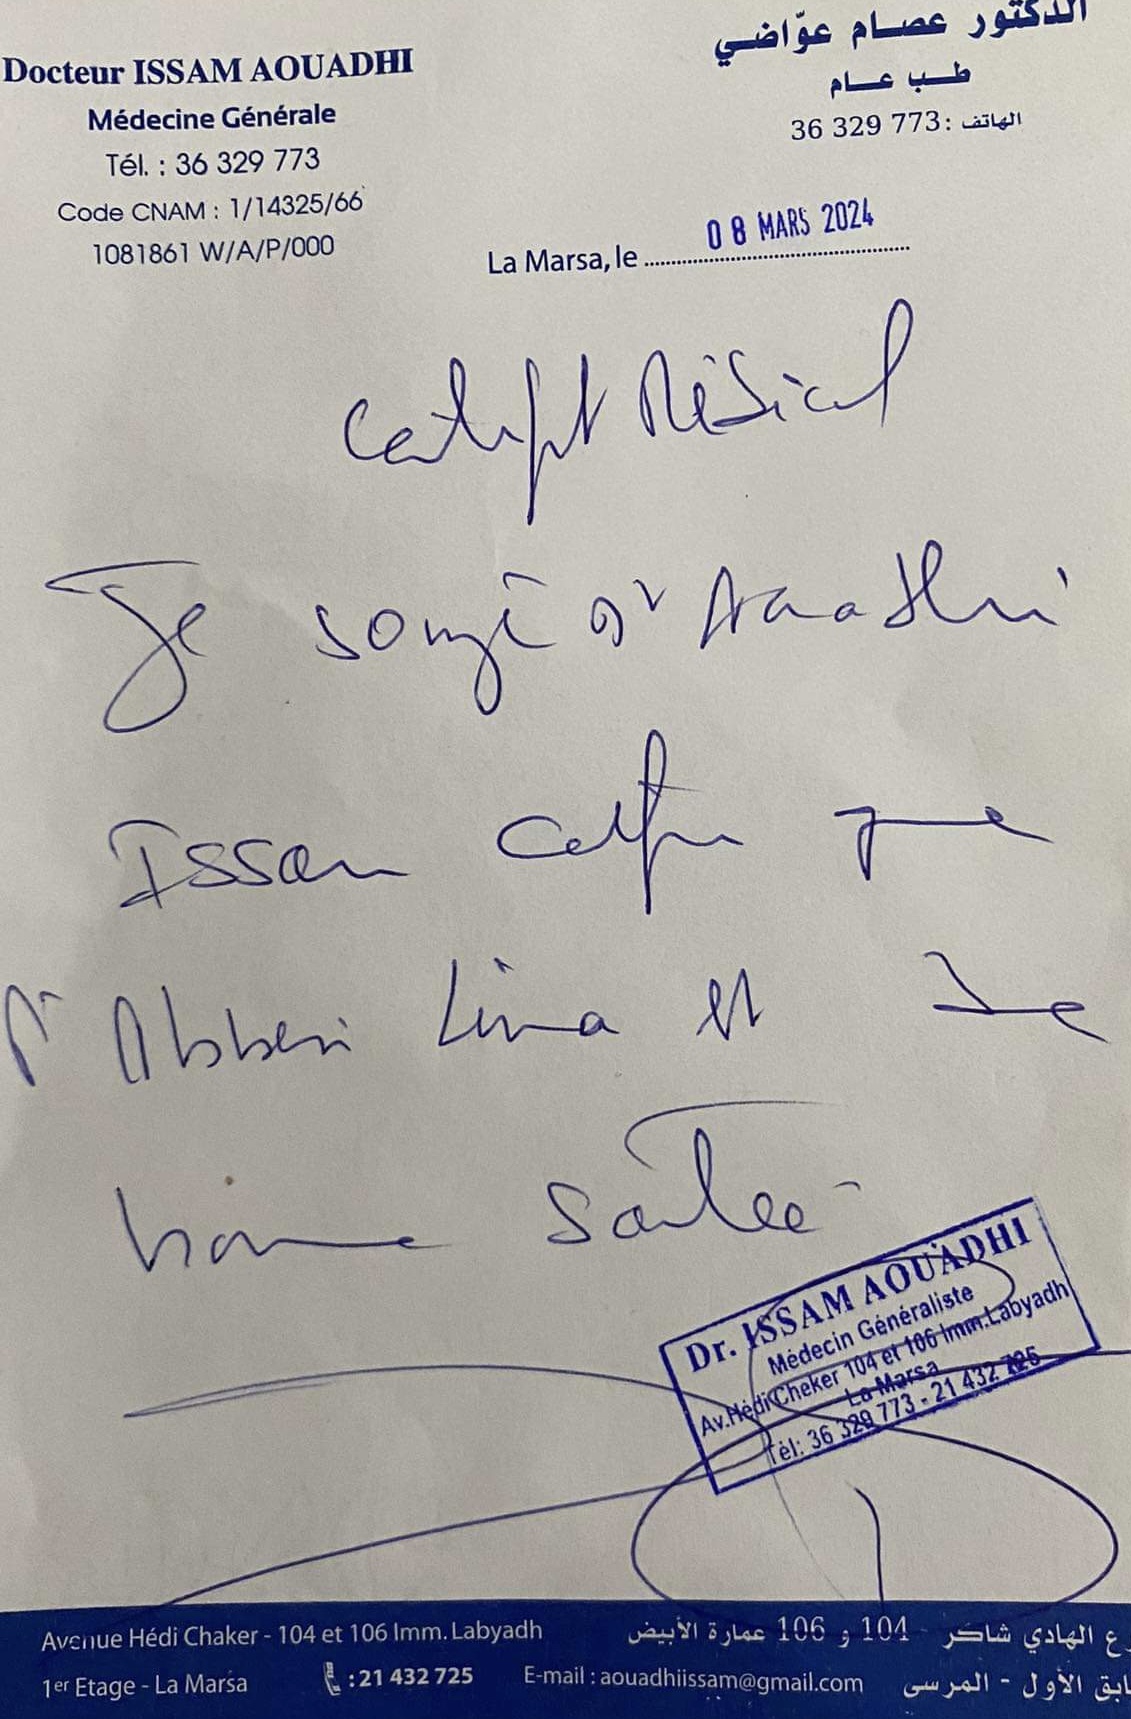 Docteur ISSAM AOUADHI
Médecine Générale
Tél. : 36 329 773
Code CNAM : 1/14325/66
1081861 W/A/P/000
الدكتور عصام عوّاضي
طب عام
الهاتف : 36 329 773
La Marsa, le 08 MARS 2024
Certificat Médical
Je soussigné Dr Aouadhi
Issam certifie que
Abbesi Lina est de
bonne Santée
Dr. ISSAM AOUADHI
Médecin Généraliste
Av.Hédi Cheker 104 et 106 Imm.Labyadh
La Marsa
Tél: 36 329 773 - 21 432 725
Avenue Hédi Chaker - 104 et 106 Imm. Labyadh
1er Etage - La Marsa
: 21 432 725
E-mail : aouadhiissam@gmail.com
ع الهادي شاكر - 104 و 106 عمارة الأبيض
ابق الأول - المرسى